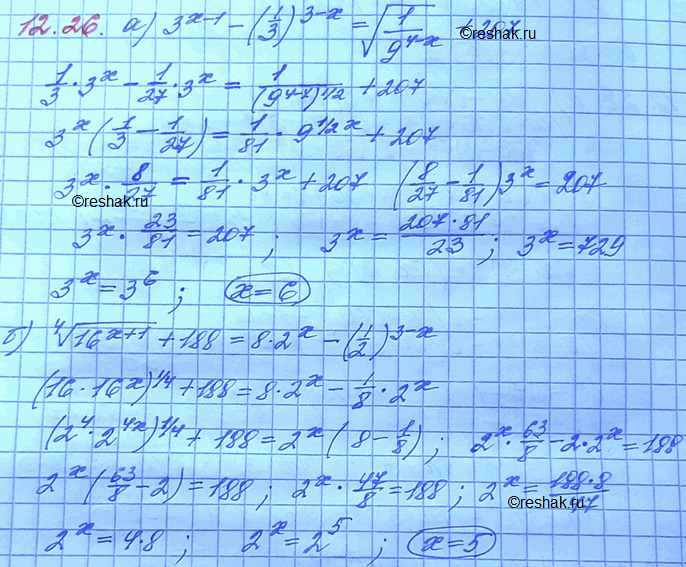 12.26. а) 3^{x-1} - (1/3)^{3-x} = √(1/9^{4-x}) + 207
©reshak.ru
1/3 · 3^x - 1/27 · 3^x = 1/(9^{4-x})^{1/2} + 207
3^x (1/3 - 1/27) = 1/81 · 9^{1/2 x} + 207
3^x · 8/27 = 1/81 · 3^x + 207 (8/27 - 1/81) 3^x = 207
©reshak.ru
3^x · 23/81 = 207 ; 3^x = 207·81/23 ; 3^x = 729
3^x = 3^6 ; x = 6
б) ∜(16^{x+1}) + 188 = 8·2^x - (1/2)^{3-x}
(16 · 16^x)^{1/4} + 188 = 8·2^x - 1/8 · 2^x
(2^4 · 2^{4x})^{1/4} + 188 = 2^x (8 - 1/8) ; 2^x · 63/8 - 2·2^x = 188
2^x (63/8 - 2) = 188 ; 2^x · 47/8 = 188 ; 2^x = 188·8/47
©reshak.ru
2^x = 4·8 ; 2^x = 2^5 ; x = 5